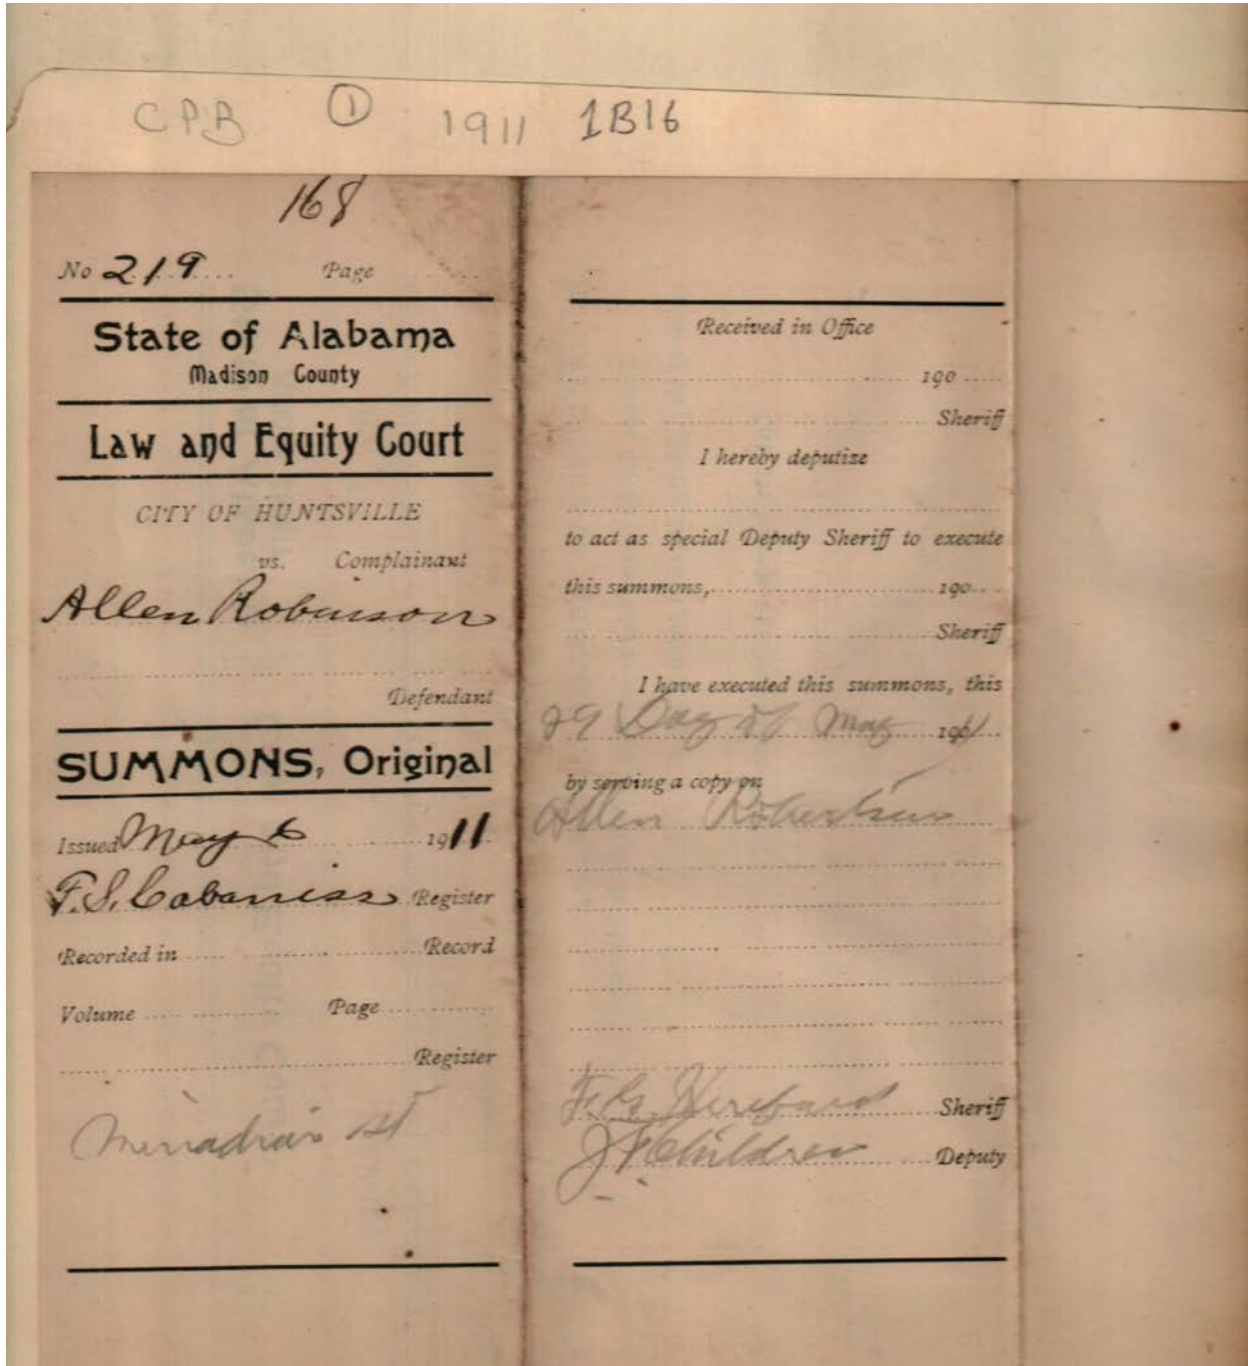 CPB ① 1911 1B16
168
No 219 Page
State of Alabama
Madison County
Law and Equity Court
CITY OF HUNTSVILLE
vs. Complainant
Allen Robinson
Defendant
SUMMONS, Original
Issued May 6 1911
F.S. Cabaniss Register
Recorded in Record
Volume Page
Register
St
Received in Office
190
Sheriff
I hereby deputize
to act as special Deputy Sheriff to execute
this summons, 190
Sheriff
I have executed this summons, this
29 Day of May 1911
by serving a copy on
Allen Robertson
Sheriff
J F Childres Deputy